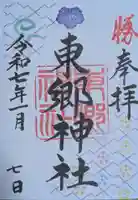 奉拝
東郷神社
令和七年一月
七日